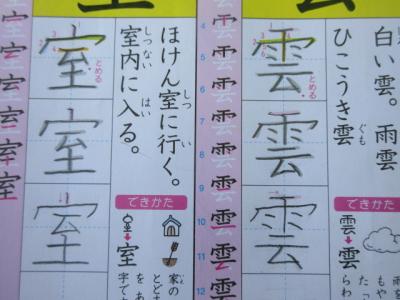 白い雲。雨雲
ひこうき雲
ぐも
雲
雲
雲
とめる
できかた
雲
雲
4
5
6
7
8
9
10
11
12
雲
雲
雲
雲
雲
雲
雲
雲
ほけん室に行く。
しつ
い
室内に入る。
しつない
はい
室
室
室
とめる
できかた
室
家の
とど
を
字で
室
室
室
室
室
室